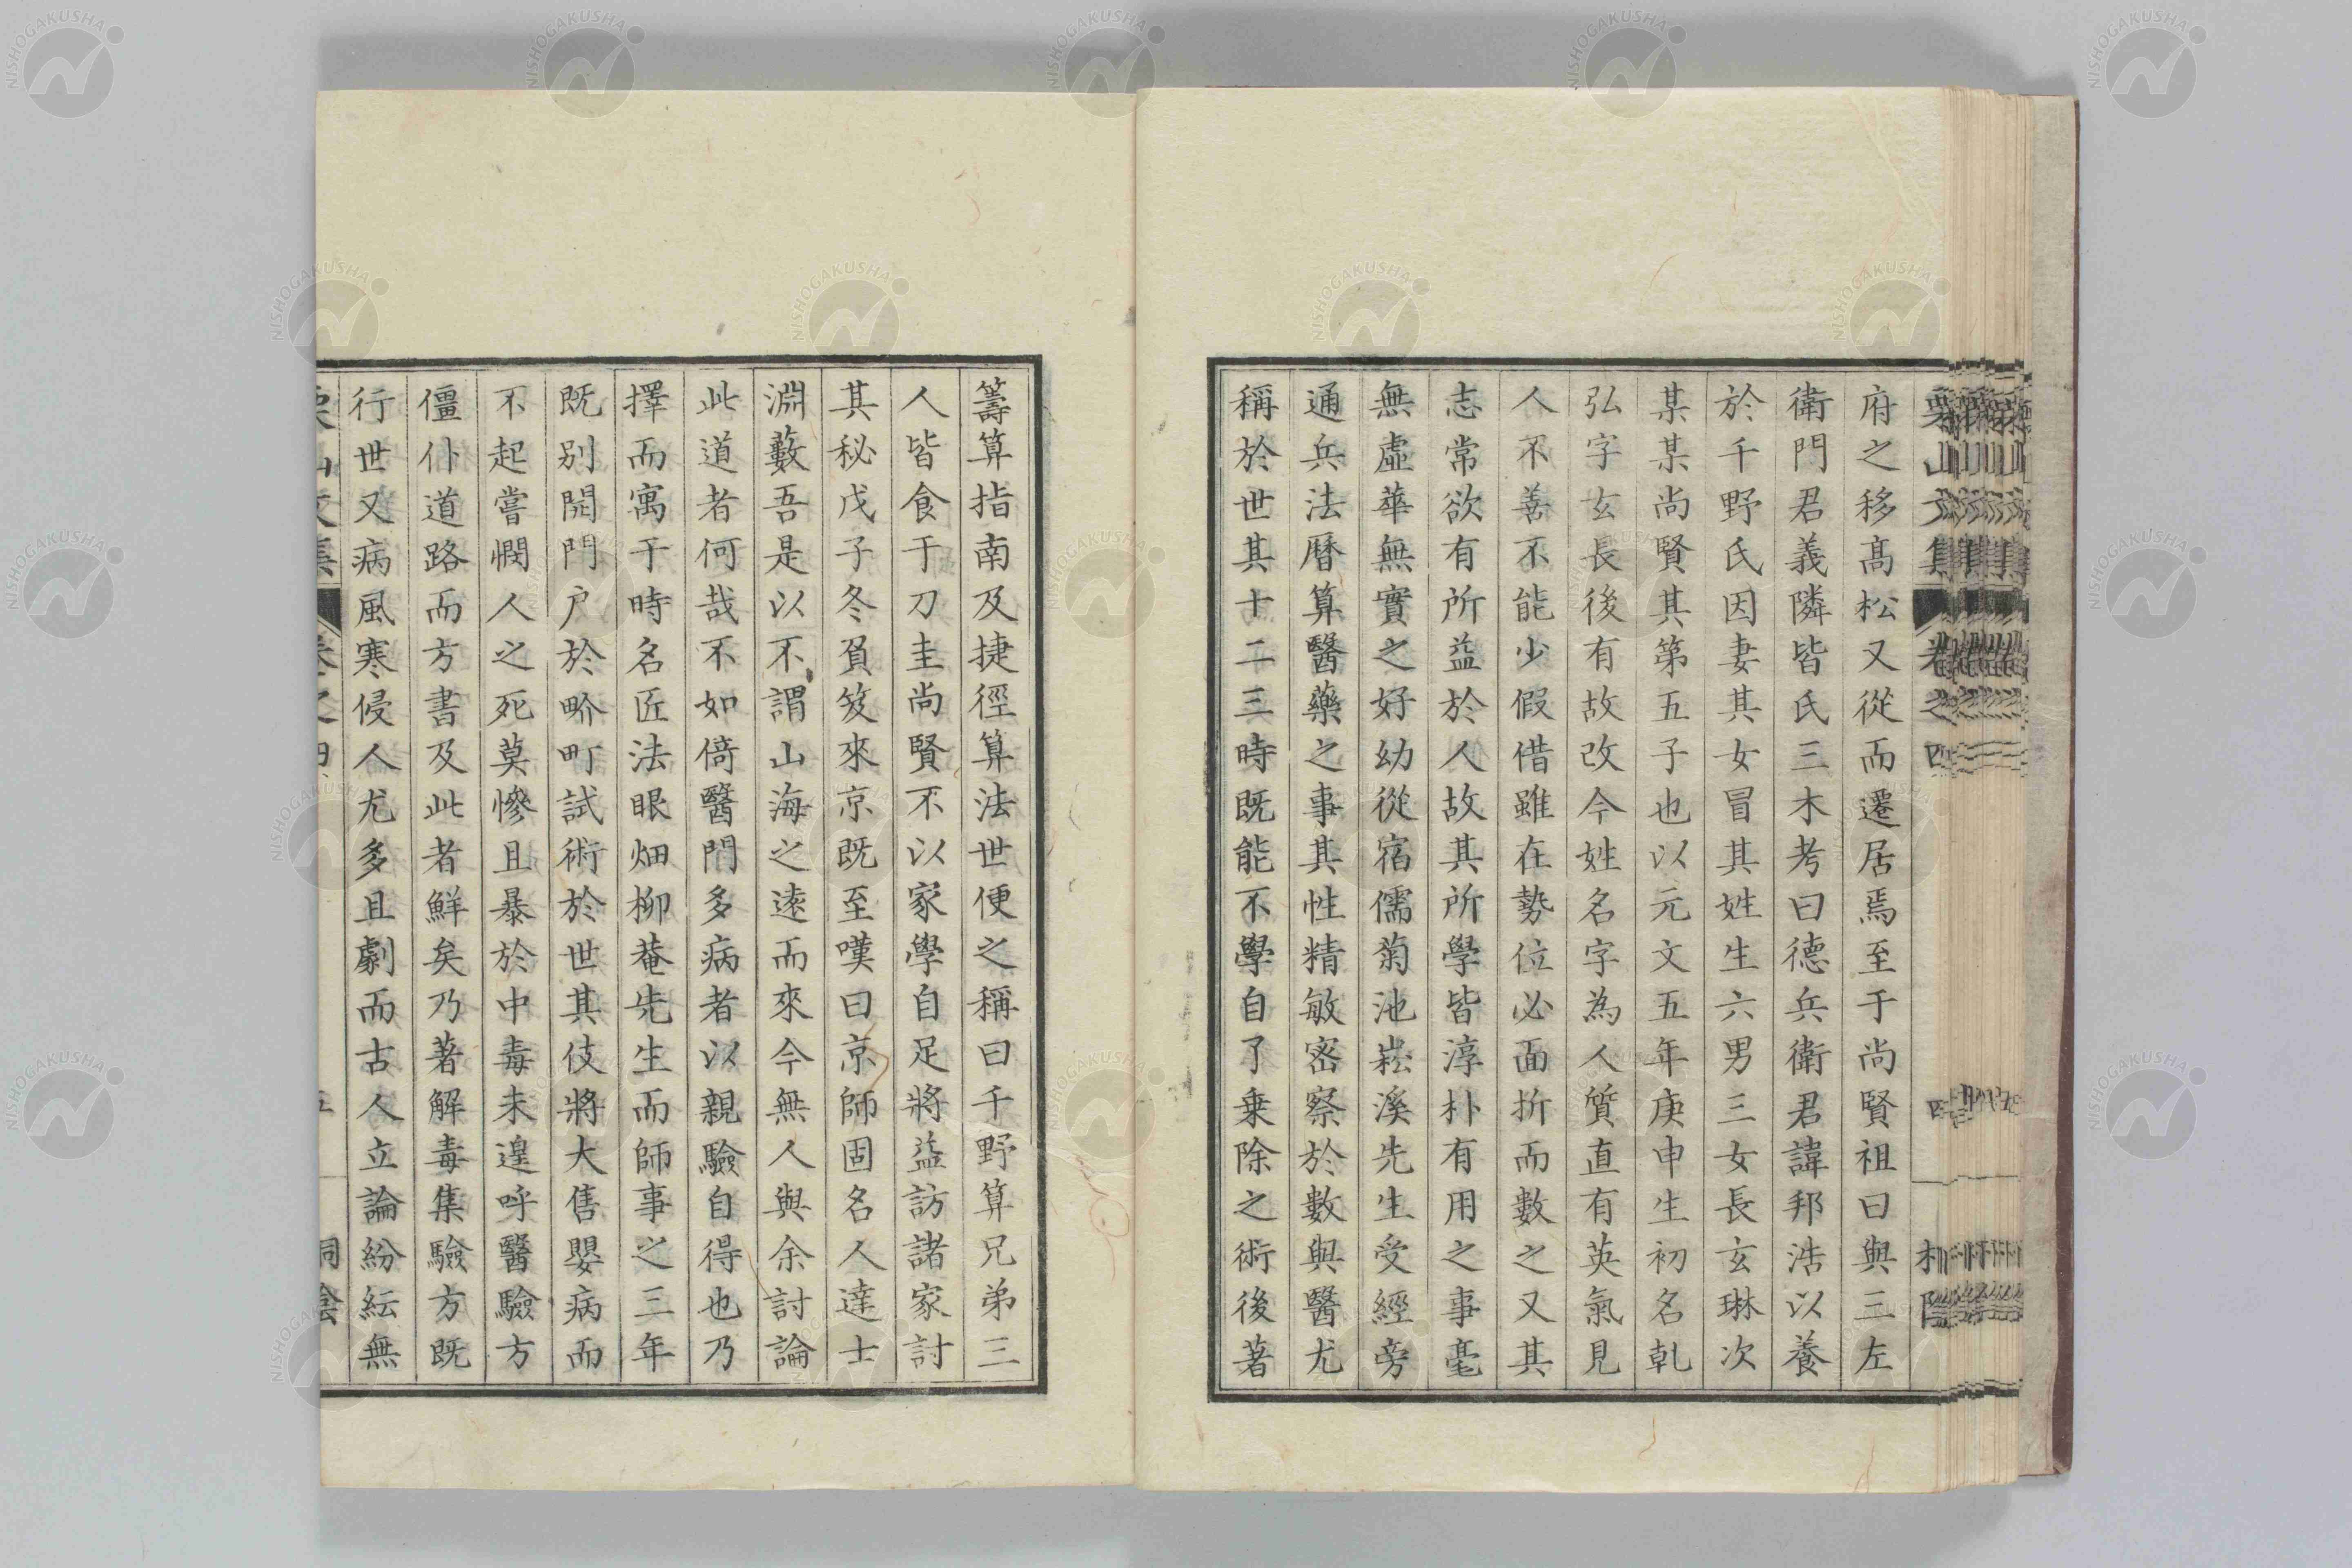 府之移高松又從而遷居焉至于尚賢祖曰與三左
衛門君義隣皆氏三木考曰德兵衛君諱邦浩以養
於千野氏因妻其女冒其姓生六男三女長玄琳次
某某尚賢其第五子也以元文五年庚申生初名乹
弘字玄長後有故改今姓名字為人質直有英氣見
人不善不能少假借雖在勢位必面折而數之又其
志常欲有所益於人故其所學皆淳朴有用之事毫
無虛華無實之好幼從宿儒菊池崧溪先生受經旁
通兵法曆算醫藥之事其性精敏密察於數與醫尤
稱於世其十二三時既能不學自了乗除之術後著
籌算指南及捷徑算法世便之稱曰千野算兄弟三
人皆食于刀圭尚賢不以家學自足將益訪諸家討
其秘戊子冬負笈來京既至嘆曰京師固名人達士
淵藪吾是以不謂山海之遠而來今無人與余討論
此道者何哉不如倚醫門多病者以親驗自得也乃
擇而寓于時名匠法眼畑柳菴先生而師事之三年
既別開門戸於畍町試術於世其伎將大售嬰病而
不起嘗憫人之死莫慘且暴於中毒未遑呼醫驗方
僵仆道路而方書及此者鮮矣乃著解毒集驗方既
行世又病風寒侵人尤多且劇而古人立論紛紜無